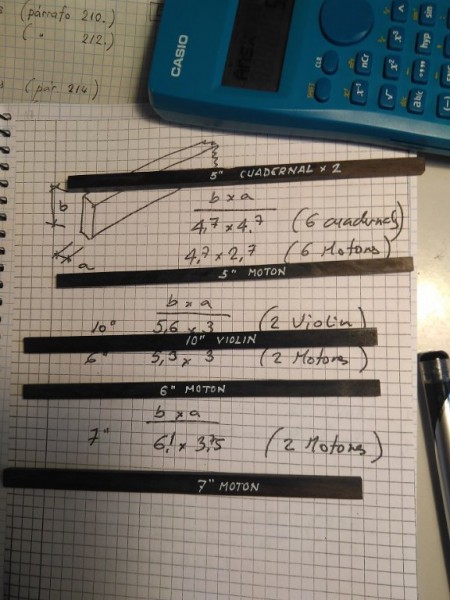 (párrafo 210.)
( " 212.)
(pár. 214)
CASIO
CLR
x³
hyp
x⁻¹
nCr
x²
√
5" CUADERNAL x 2
b
b x a
4,7 x 4,7 (6 cuadernals)
4,7 x 2,7 (6 Motons)
a
5" MOTON
b x a
10" 5,6 x 3 (2 Violin)
10" VIOLIN
6" 5,3 x 3 (2 Motons)
6" MOTON
b x a
7" 6,1 x 3,75 (2 Motons)
7" MOTON